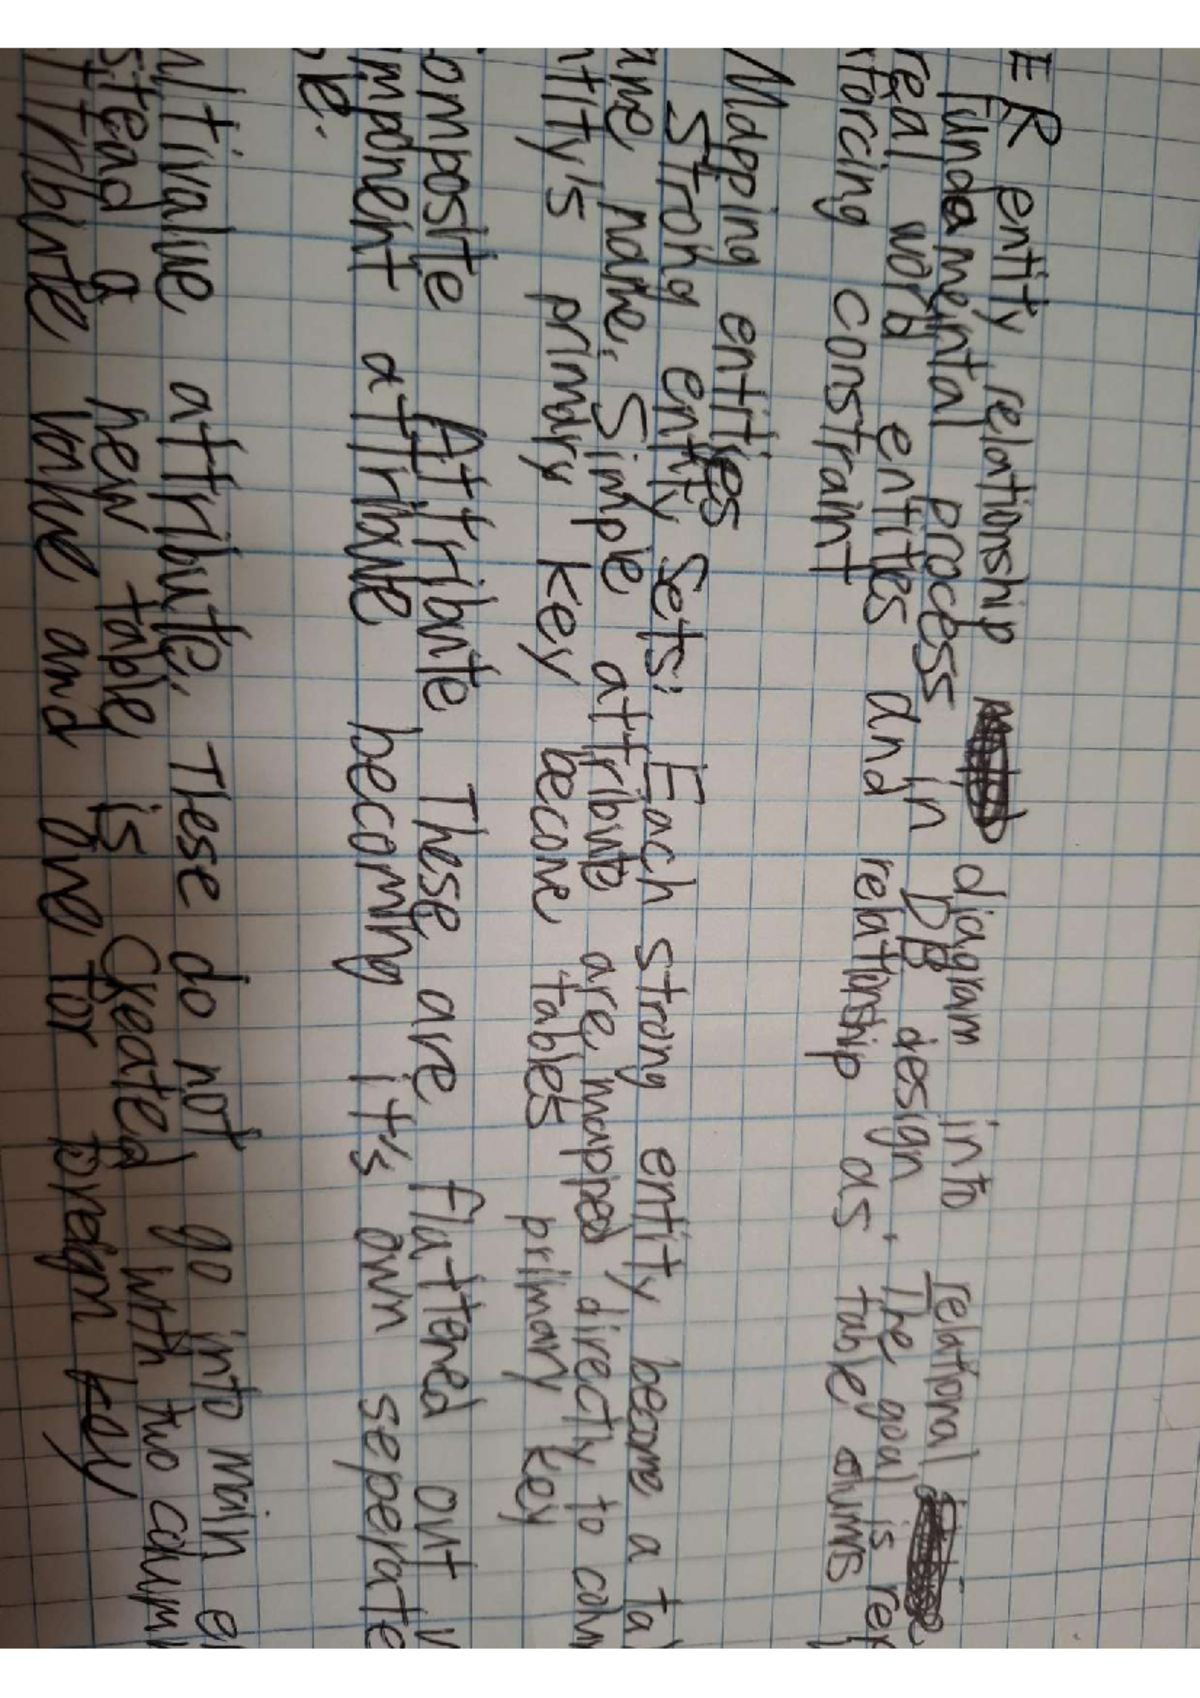 ER entity relationship diagram into relational
fundamental process in DB design. The goal is rep
real world entities and relationship as table
forcing constraint
Mapping entities
Strong entity sets: Each strong entity become a ta
ame name. Simple attribute are mapped directly to colu
ntity's primary key become tables primary key
omposite Attribute. These are flattened out
mponent attribute becoming it's own seperate
ultivalue attribute. These do not go into main e
stead a new table is created with two colum
ttribute value and one for foreign key